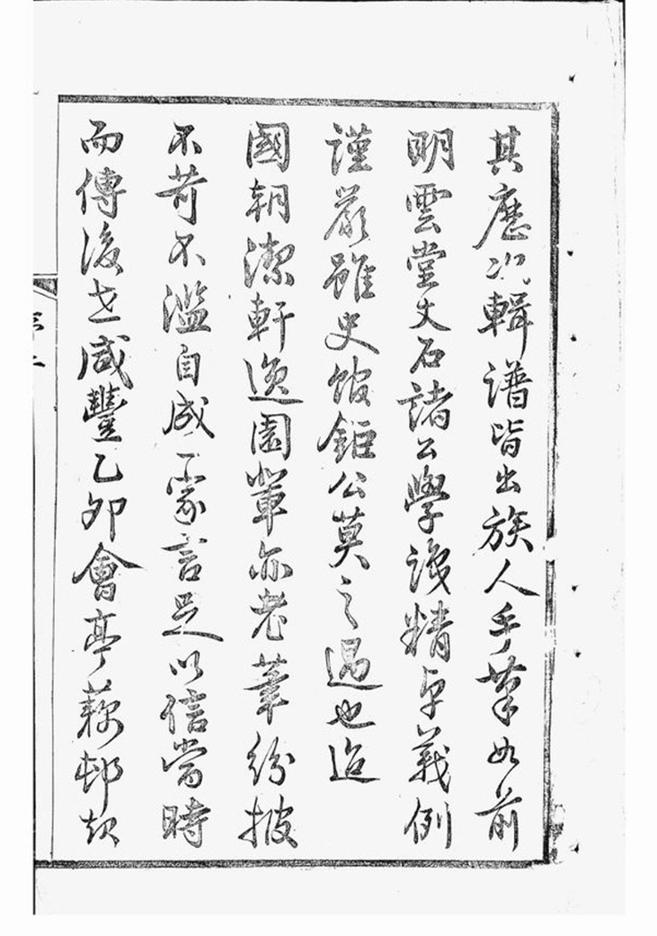 其歷次輯譜皆出族人手筆如前
明雲堂丈石諸公學識精卓義例
謹嚴雖史館鉅公莫之過也迨
國朝潔軒逸園輩亦老筆紛披
不苛不濫自成一家言足以信當時
而傳後世咸豐乙卯會亭蓀邨